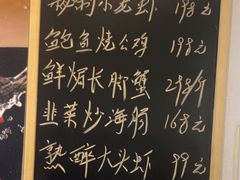 秘制小龙虾 198元
鲍鱼烧公鸡 198元
鲜焗长脚蟹 298/斤
韭菜炒海肠 168元
熟醉大头虾 99元